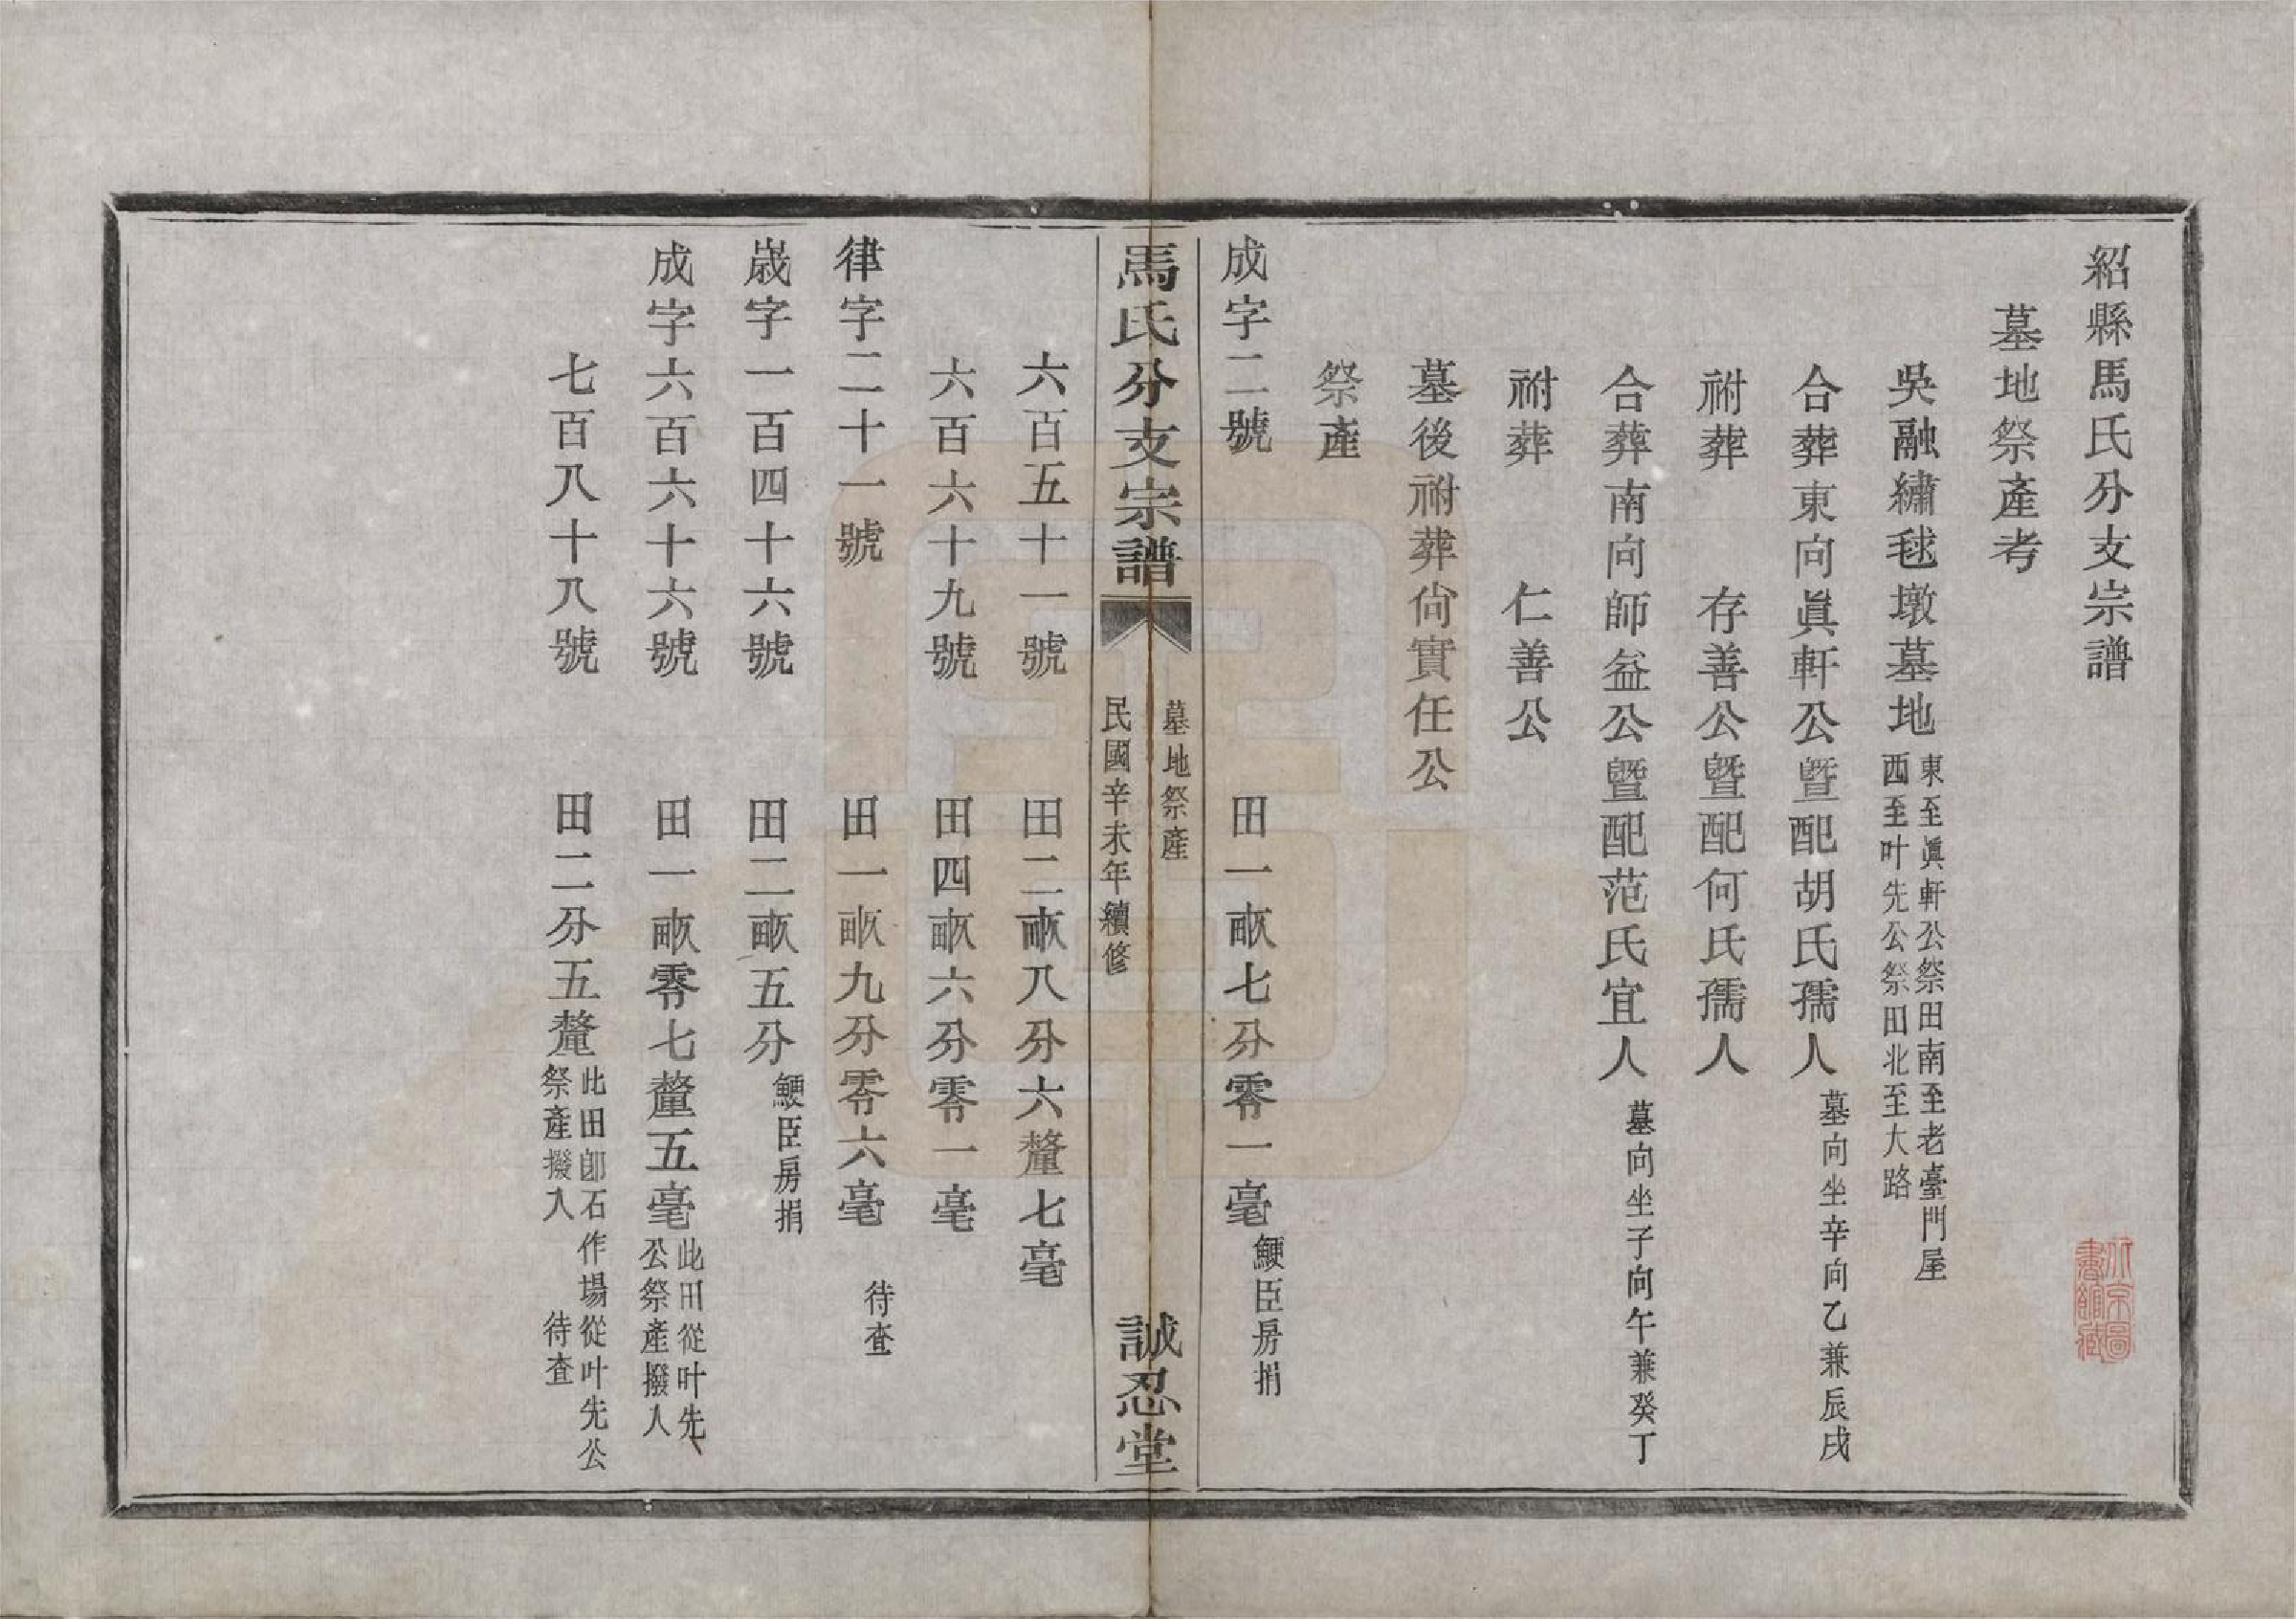 紹縣馬氏分支宗譜
墓地祭產考
吳融繡毬墩墓地 東至眞軒公祭田南至老臺門屋
西至叶先公祭田北至大路
合葬東向眞軒公曁配胡氏孺人 墓向坐辛向乙兼辰戌
祔葬 存善公曁配何氏孺人
合葬南向師益公曁配范氏宜人 墓向坐子向午兼癸丁
祔葬 仁善公
墓後祔葬尙實任公
祭產
成字二號 田一畝七分零一毫 鯁臣房捐
馬氏分支宗譜 墓地祭產
民國辛未年續修 誠忍堂
六百五十一號 田二畝八分六釐七毫
六百六十九號 田四畝六分零一毫
律字二十一號 田一畝九分零六毫 待查
歲字一百四十六號 田二畝五分 鯁臣房捐
成字六百六十六號 田一畝零七釐五毫 此田從叶先
公祭產撥人
七百八十八號 田二分五釐 此田卽石作場從叶先公
祭產撥入 待查
北京圖
書館藏